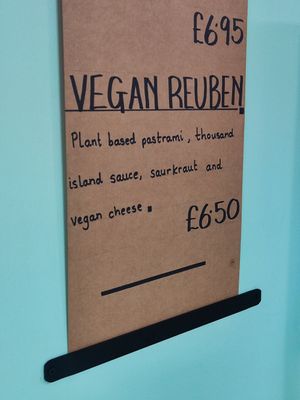 £6.95
VEGAN REUBEN.
Plant based pastrami, thousand
island sauce, saurkraut and
vegan cheese.
£6.50